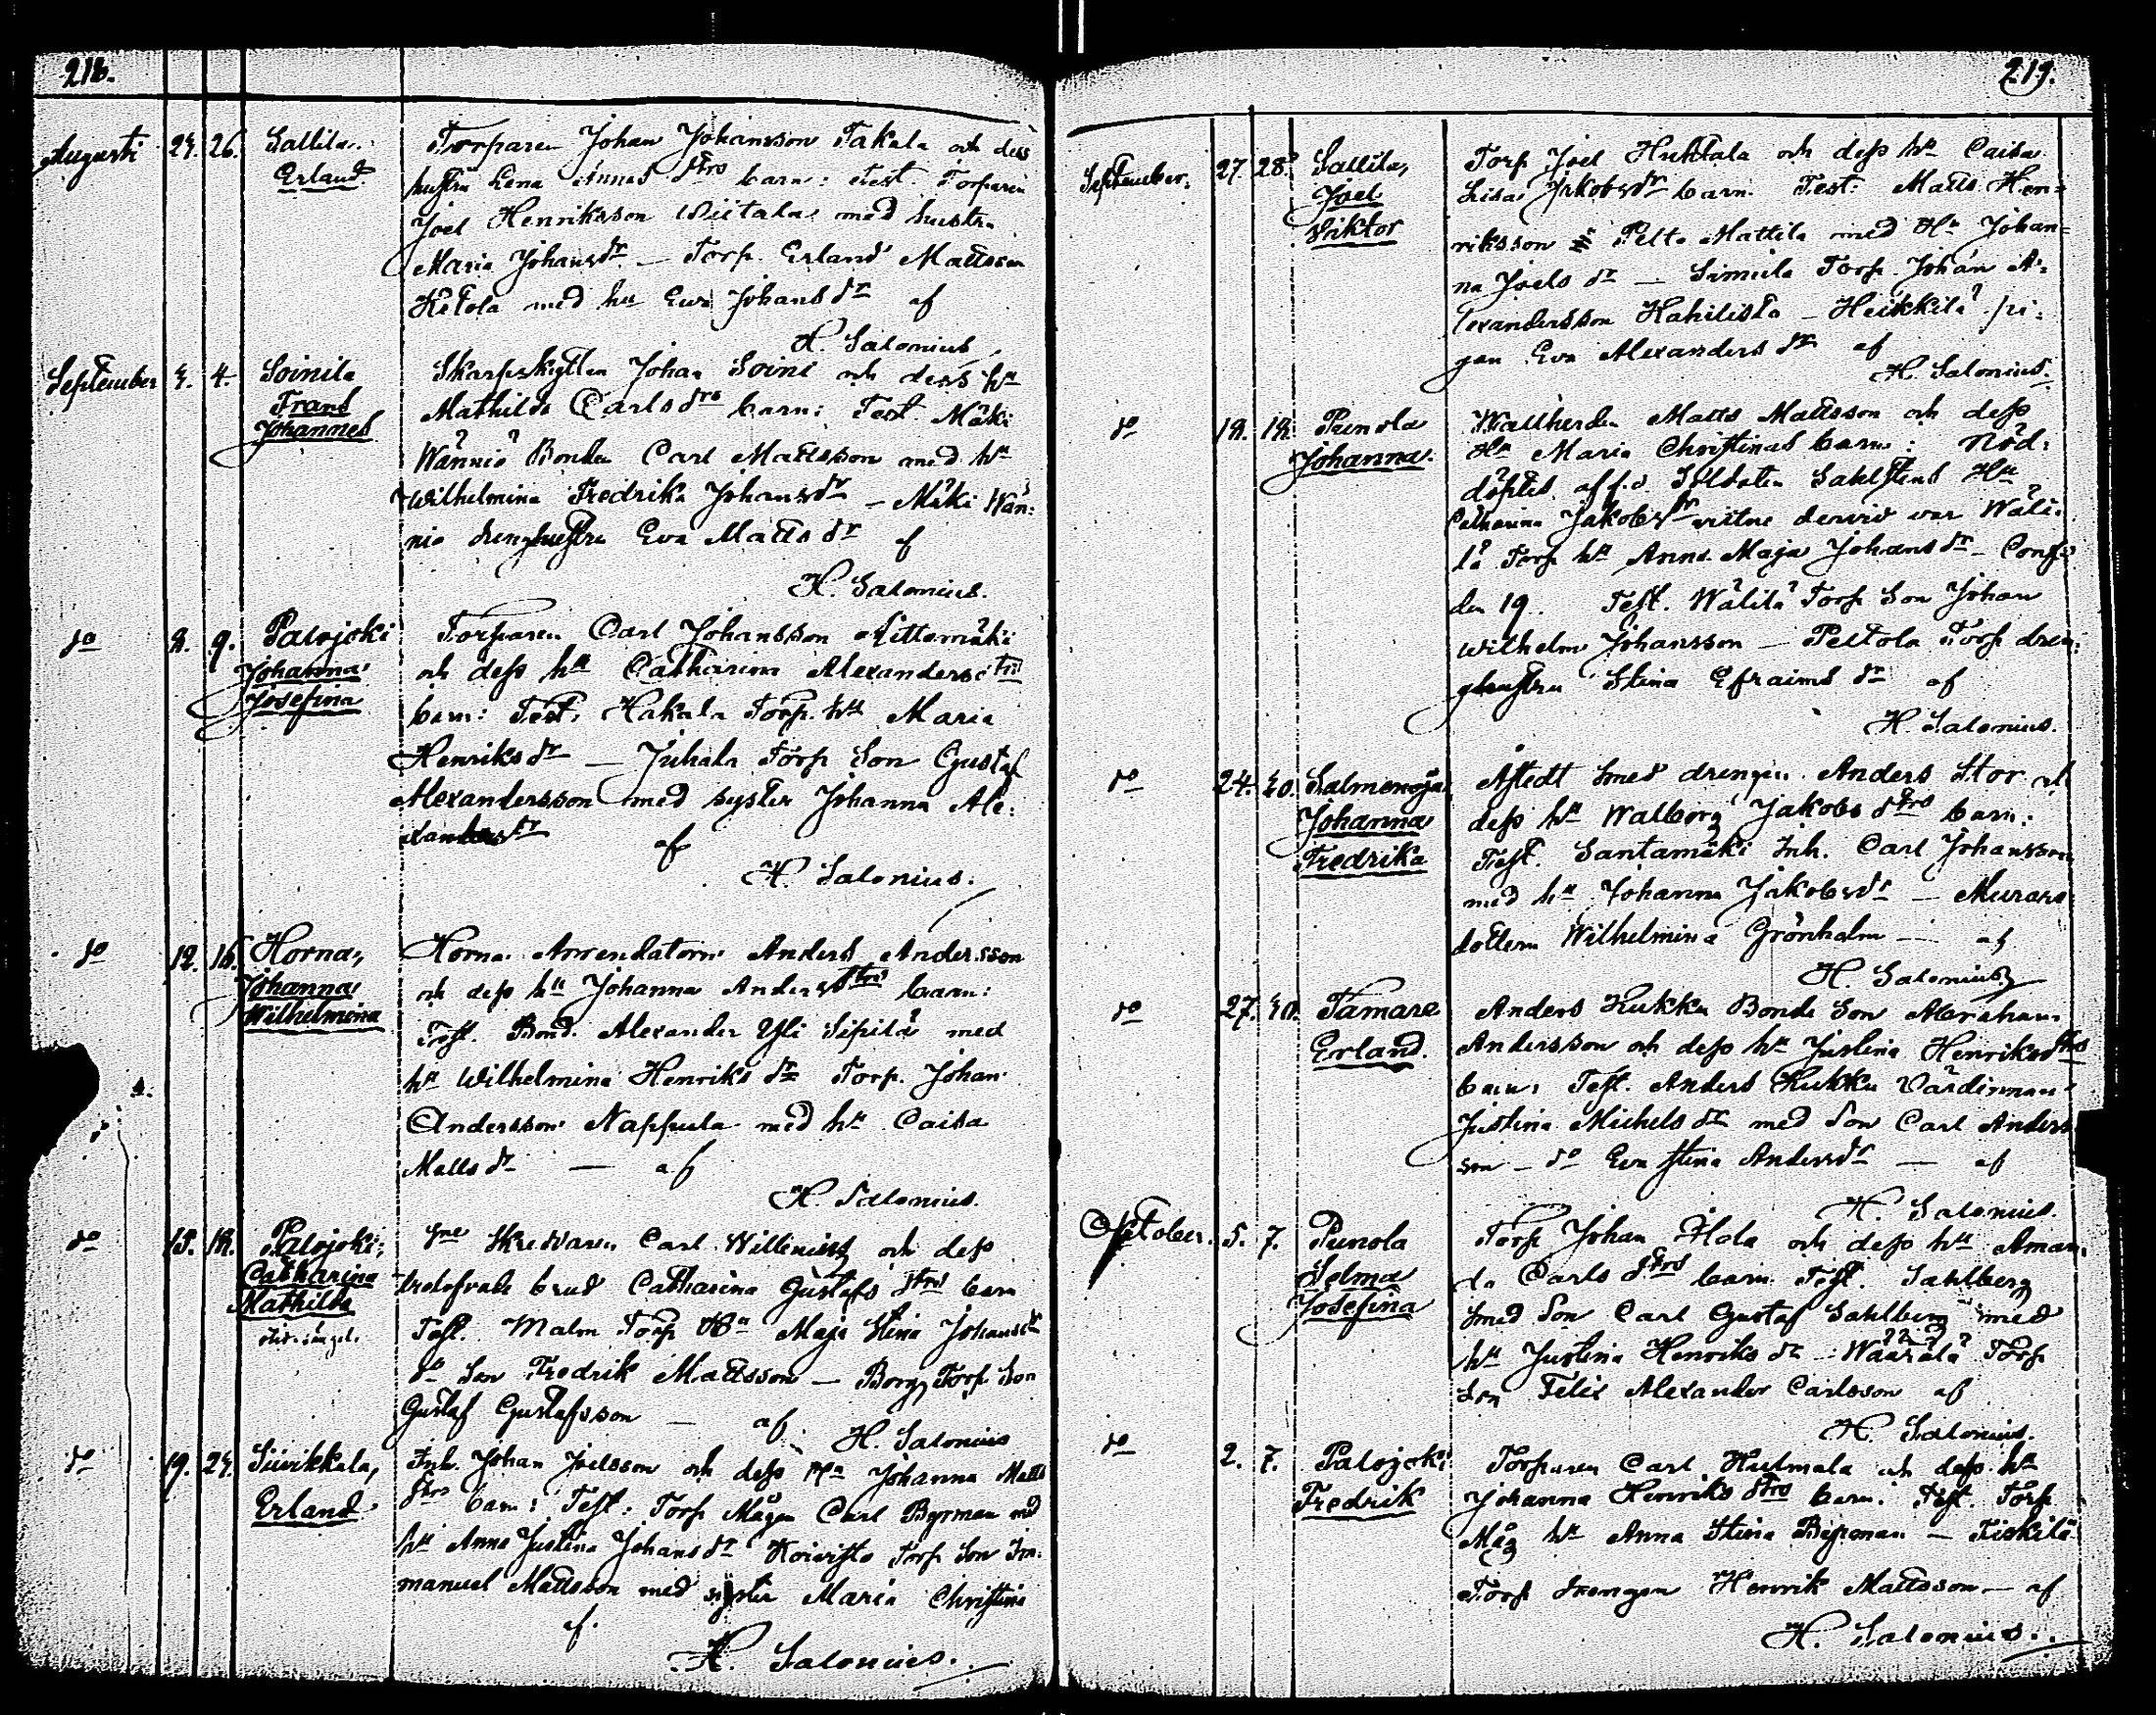 218.
Augusti 24. 26. Sallila,
Erland
Torparen Johan Johansson Takala och dess
hustru Lena Annas dtrs barn: Test. Torparen
Joel Henriksson Wiitala med hustru
Maria Johansdr — Torp. Erland Mattsson
Ketola med hu Eva Johans dr af
H. Salonius
September 3. 4. Soinila
Frans
Johannes
Skarpskytten Johan Soini och dess hu
Mathilda Carls drs barn: Test. Mäki
Wänniö Bonden Carl Mattsson med hu
Wilhelmina Fredrika Johansdr — Mäki Wän:
niö drenghustru Eva Matts dr af
H. Salonius.
do 8. 9. Palojoki
Johanna
Josefina
Torparen Carl Johansson
och dess hu Catharina Alexanders
barn: Test. Hakala Torp. hu Maria
Henriks dr — Juhala Torp Son Gustaf
Alexandersson med syster Johanna Ale:
xandersdr af
H. Salonius.
do 12. 16. Horna,
Johanna
Wilhelmina
Horna Arrendatorn Anders Andersson
och dess hu Johanna Andersdtrs barn:
Test. Bond. Alexander Yli Sipilä med
hu Wilhelmina Henriks dr Torp. Johan
Andersson Nappula med hu Caisa
Matts dr — af
H. Salonius.
do 15. 18. Palojoki,
Catharina
Mathilda
Skredaren Carl Willenius och dess
trolofvade brud Catharina Gustafs dtrs barn
Test. Malm Torp Hu Maja Stina Johansdr
do Son Fredrik Mattsson — Borg Torp Son
Gustaf Gustafsson — af
H. Salonius
do 19. 24. Suvikkala,
Erland
Inh. Johan Joelsson och dess Hu Johanna Matts
dtrs barn: Test: Torp Mågen Carl Byrman med
hu Anna Justina Johans dr Koivisto Torp Son Im:
manuel Mattsson med syster Maria Christina
af.
H. Salonius.
219.
September. 27. 28. Sallila,
Joel
Viktor
Torp Joel Huhtala och dess hu Caisa
Lisa Jakobsdr barn. Test: Matts Hen=
riksson Pelto Mattila med Hu Johan=
na Joels dr — Simula Torp. Johan A=
lexandersson Hahilista — Heikkilä pi:
gan Eva Alexanders dr af
H. Salonius.
do 18. 18. Punola
Johanna.
Wallherden Matts Mattsson och dess
Hu Maria Christinas barn: Nöd:
döptes af f.d. Soldaten Sahlstens Hu
Catharina Jakobsdr vittne dervid var Wäli:
lä Torp hu Anna Maja Johans dr — Conf.
den 19. Test. Wälilä Torp Son Johan
Wilhelm Johansson — Peltola Torp dren:
ghustru Stina Efraims dr af
H. Salonius.
do 24. 30. Salmenoja
Johanna
Fredrika
Afstedt Smed drengen Anders Stor och
dess hu Walborg Jakobs dtrs barn.
Test. Santamäki Inh. Carl Johansson
med hu Johanna Jakobsdr — Murare
dottern Wilhelmina Grönholm — af
H. Salonius
do 27. 30. Tamare
Erland.
Anders Kukku Bonde Son Abraham
Andersson och dess hu Justina Henriksdtrs
barn: Test. Anders Kukku Värdinnan
Justina Michels dr med Son Carl Anders
son — do Eva Stina Andersdr — af
H. Salonius.
October. 5. 7. Punola
Selma
Josefina
Torp Johan Hola och dess hu Aman:
da Carls dtrs barn Test. Sahlberg
Smed Son Carl Gustaf Sahlberg med
hu Justina Henriks dr — Wäärälä Torp
Son Felix Alexander Carlsson af
H. Salonius.
do 2. 7. Palojoki
Fredrik
Torparen Carl Huhmala och dess hu
Johanna Henriks dtrs barn. Test. Torp
Måg hu Anna Stina Byrman —
Torp drengen Henrik Mattsson — af
H. Salonius.